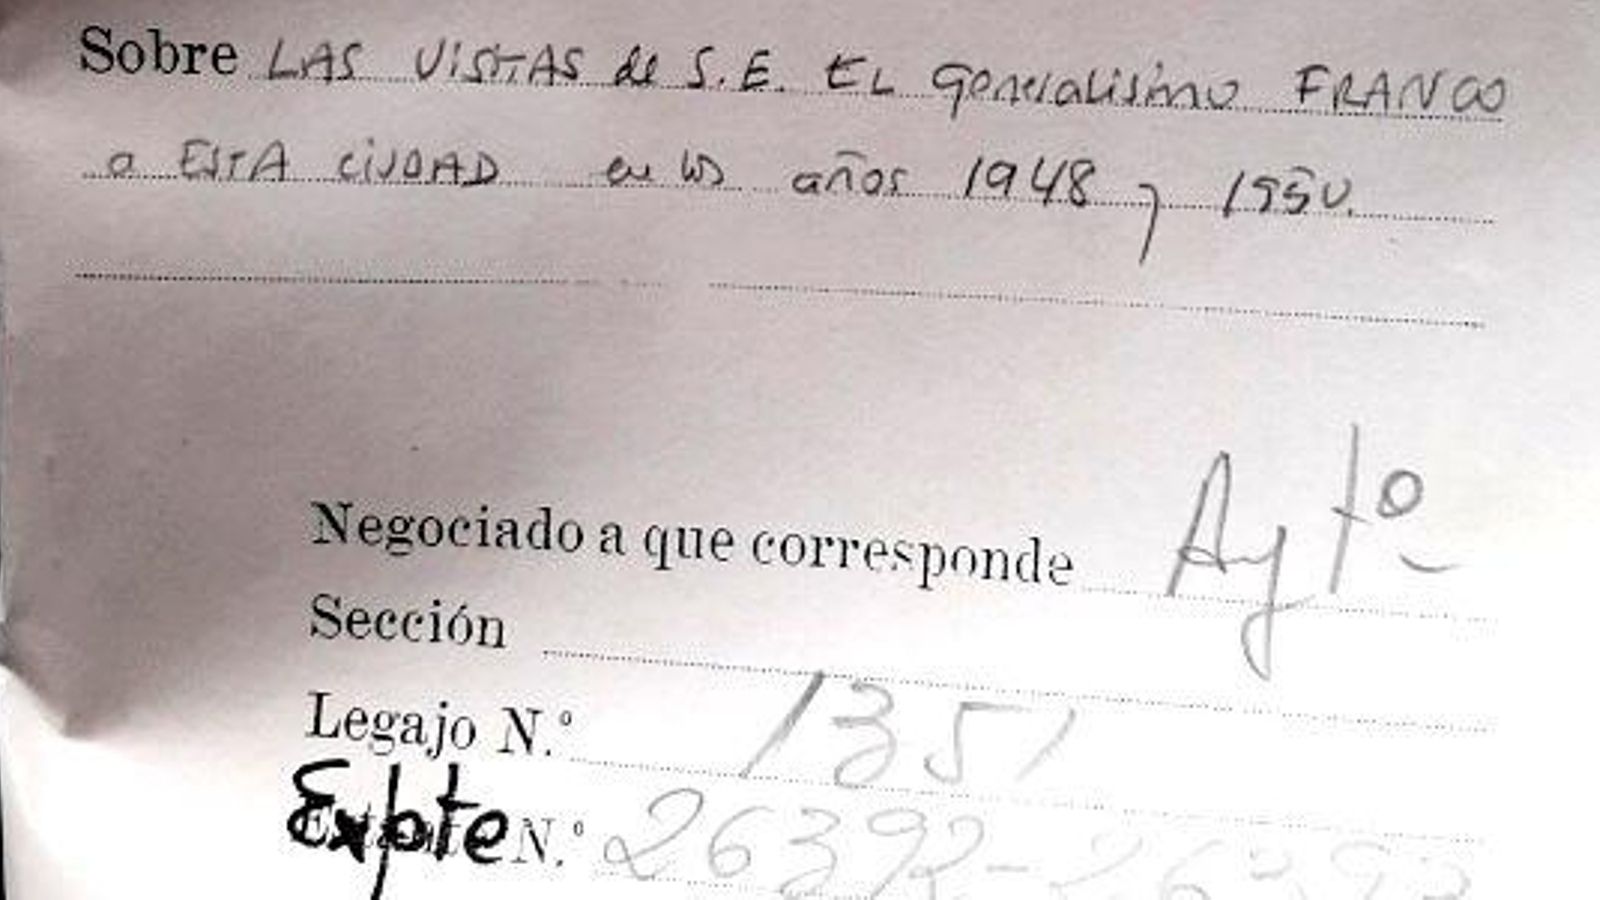 Sobre LAS VISITAS de S.E. EL Generalísimo FRANCO
a ESTA CIUDAD en los años 1948 y 1950.
Negociado a que corresponde Aytº
Sección
Legajo N.º 1351
Expte N.º 26392-26393